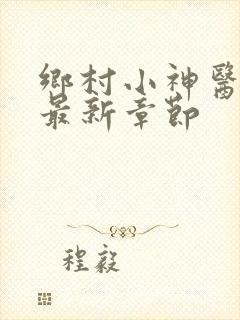 鄉村小神醫
最新章節
程毅